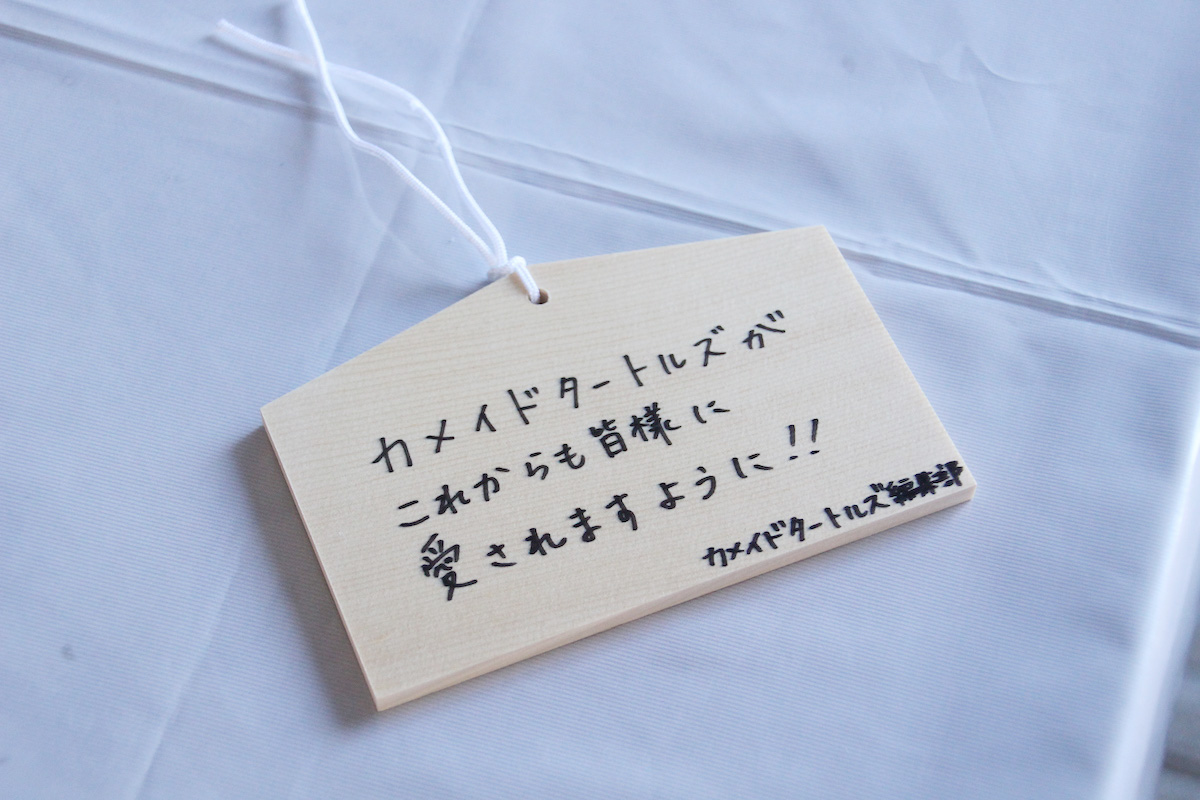 カメイドタートルズが
これからも皆様に
愛されますように!!
カメイドタートルズ編集部